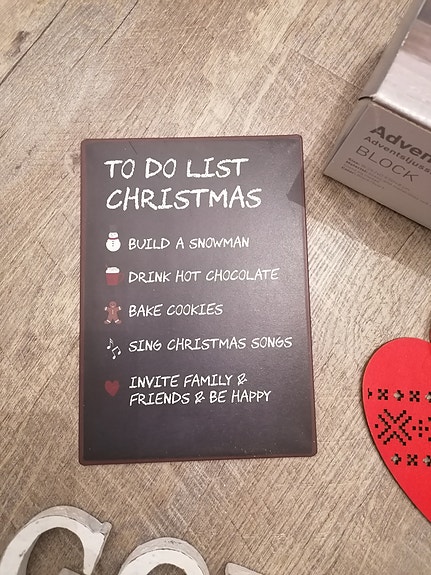 TO DO LIST
CHRISTMAS
BUILD A SNOWMAN
DRINK HOT CHOCOLATE
BAKE COOKIES
SING CHRISTMAS SONGS
INVITE FAMILY &
FRIENDS & BE HAPPY
BLOCK